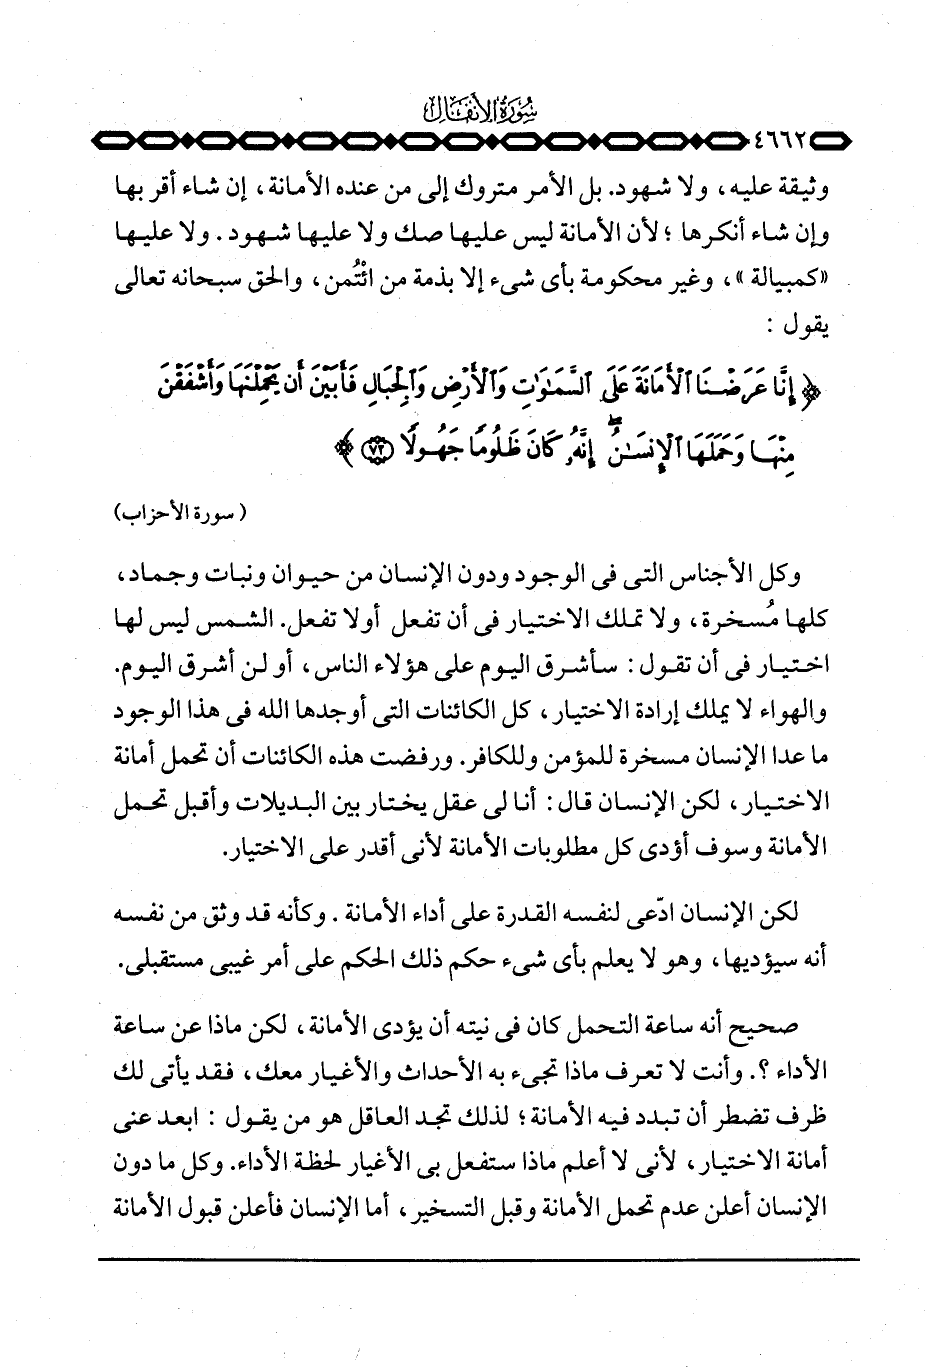 سورة الأنفال
٤٦٦٢
وثيقة عليه، ولا شهود. بل الأمر متروك إلى من عنده الأمانة، إن شاء أقر بها
وإن شاء أنكرها ؛ لأن الأمانة ليس عليها صك ولا عليها شهود. ولا عليها
«كمبيالة»، وغير محكومة بأى شىء إلا بذمة من ائْتُمن، والحق سبحانه تعالى
يقول :
﴿ إِنَّا عَرَضْنَا ٱلْأَمَانَةَ عَلَى ٱلسَّمَٰوَٰتِ وَٱلْأَرْضِ وَٱلْجِبَالِ فَأَبَيْنَ أَن يَحْمِلْنَهَا وَأَشْفَقْنَ
مِنْهَا وَحَمَلَهَا ٱلْإِنسَٰنُ ۖ إِنَّهُۥ كَانَ ظَلُومًا جَهُولًا ﴿٧٢﴾ ﴾
( سورة الأحزاب)
وكل الأجناس التى فى الوجود ودون الإنسان من حيوان ونبات وجماد،
كلها مُسخرة، ولا تملك الاختيار فى أن تفعل أولا تفعل. الشمس ليس لها
اختيار فى أن تقول : سأشرق اليوم على هؤلاء الناس، أو لن أشرق اليوم.
والهواء لا يملك إرادة الاختيار، كل الكائنات التى أوجدها الله فى هذا الوجود
ما عدا الإنسان مسخرة للمؤمن وللكافر. ورفضت هذه الكائنات أن تحمل أمانة
الاختيار، لكن الإنسان قال : أنا لى عقل يختار بين البديلات وأقبل تحمل
الأمانة وسوف أؤدى كل مطلوبات الأمانة لأنى أقدر على الاختيار.
لكن الإنسان ادّعى لنفسه القدرة على أداء الأمانة . وكأنه قد وثق من نفسه
أنه سيؤديها، وهو لا يعلم بأى شىء حكم ذلك الحكم على أمر غيبى مستقبلى.
صحيح أنه ساعة التحمل كان فى نيته أن يؤدى الأمانة، لكن ماذا عن ساعة
الأداء ؟. وأنت لا تعرف ماذا تجىء به الأحداث والأغيار معك، فقد يأتى لك
ظرف تضطر أن تبدد فيه الأمانة؛ لذلك تجد العاقل هو من يقول : ابعد عنى
أمانة الاختيار، لأنى لا أعلم ماذا ستفعل بى الأغيار لحظة الأداء. وكل ما دون
الإنسان أعلن عدم تحمل الأمانة وقبل التسخير، أما الإنسان فأعلن قبول الأمانة